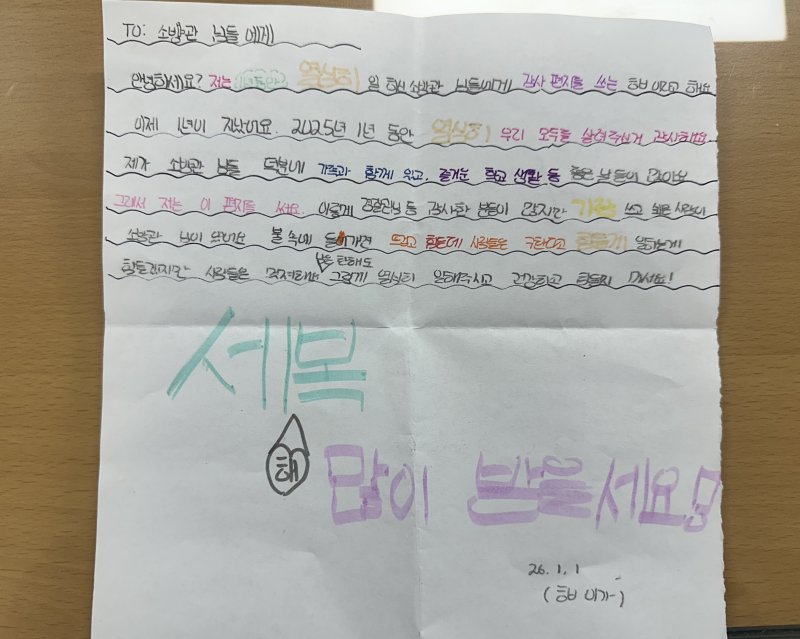 TO: 소방관 님들 에게
안녕하세요? 저는 1년동안 열심히 일 하신 소방관 님들에게 감사 편지를 쓰는 라고 해요
이제 1년이 지났어요. 2025년 1년 동안 열심히 우리 모두를 살려주신거 감사해요
제가 소방관 님들 덕분에 가족과 함께 있고, 즐거운 학교 생활 등 좋은 날들이 많아요
그래서 저는 이 편지를 써요. 이렇게 경찰관님 등 감사한 분들이 많지만 가장 쓰고 싶은 사람이
소방관 님이 였어요 불 속에 들어가면 뜨겁고 힘든데 사람들은 구한다고 힘들게 일하는게
힘들겠지만 사람들은 걱정하는 그렇게 열심히 일해주시고 건강하고 힘들지 마세요!
세복
해
많이 받을세요
26. 1. 1